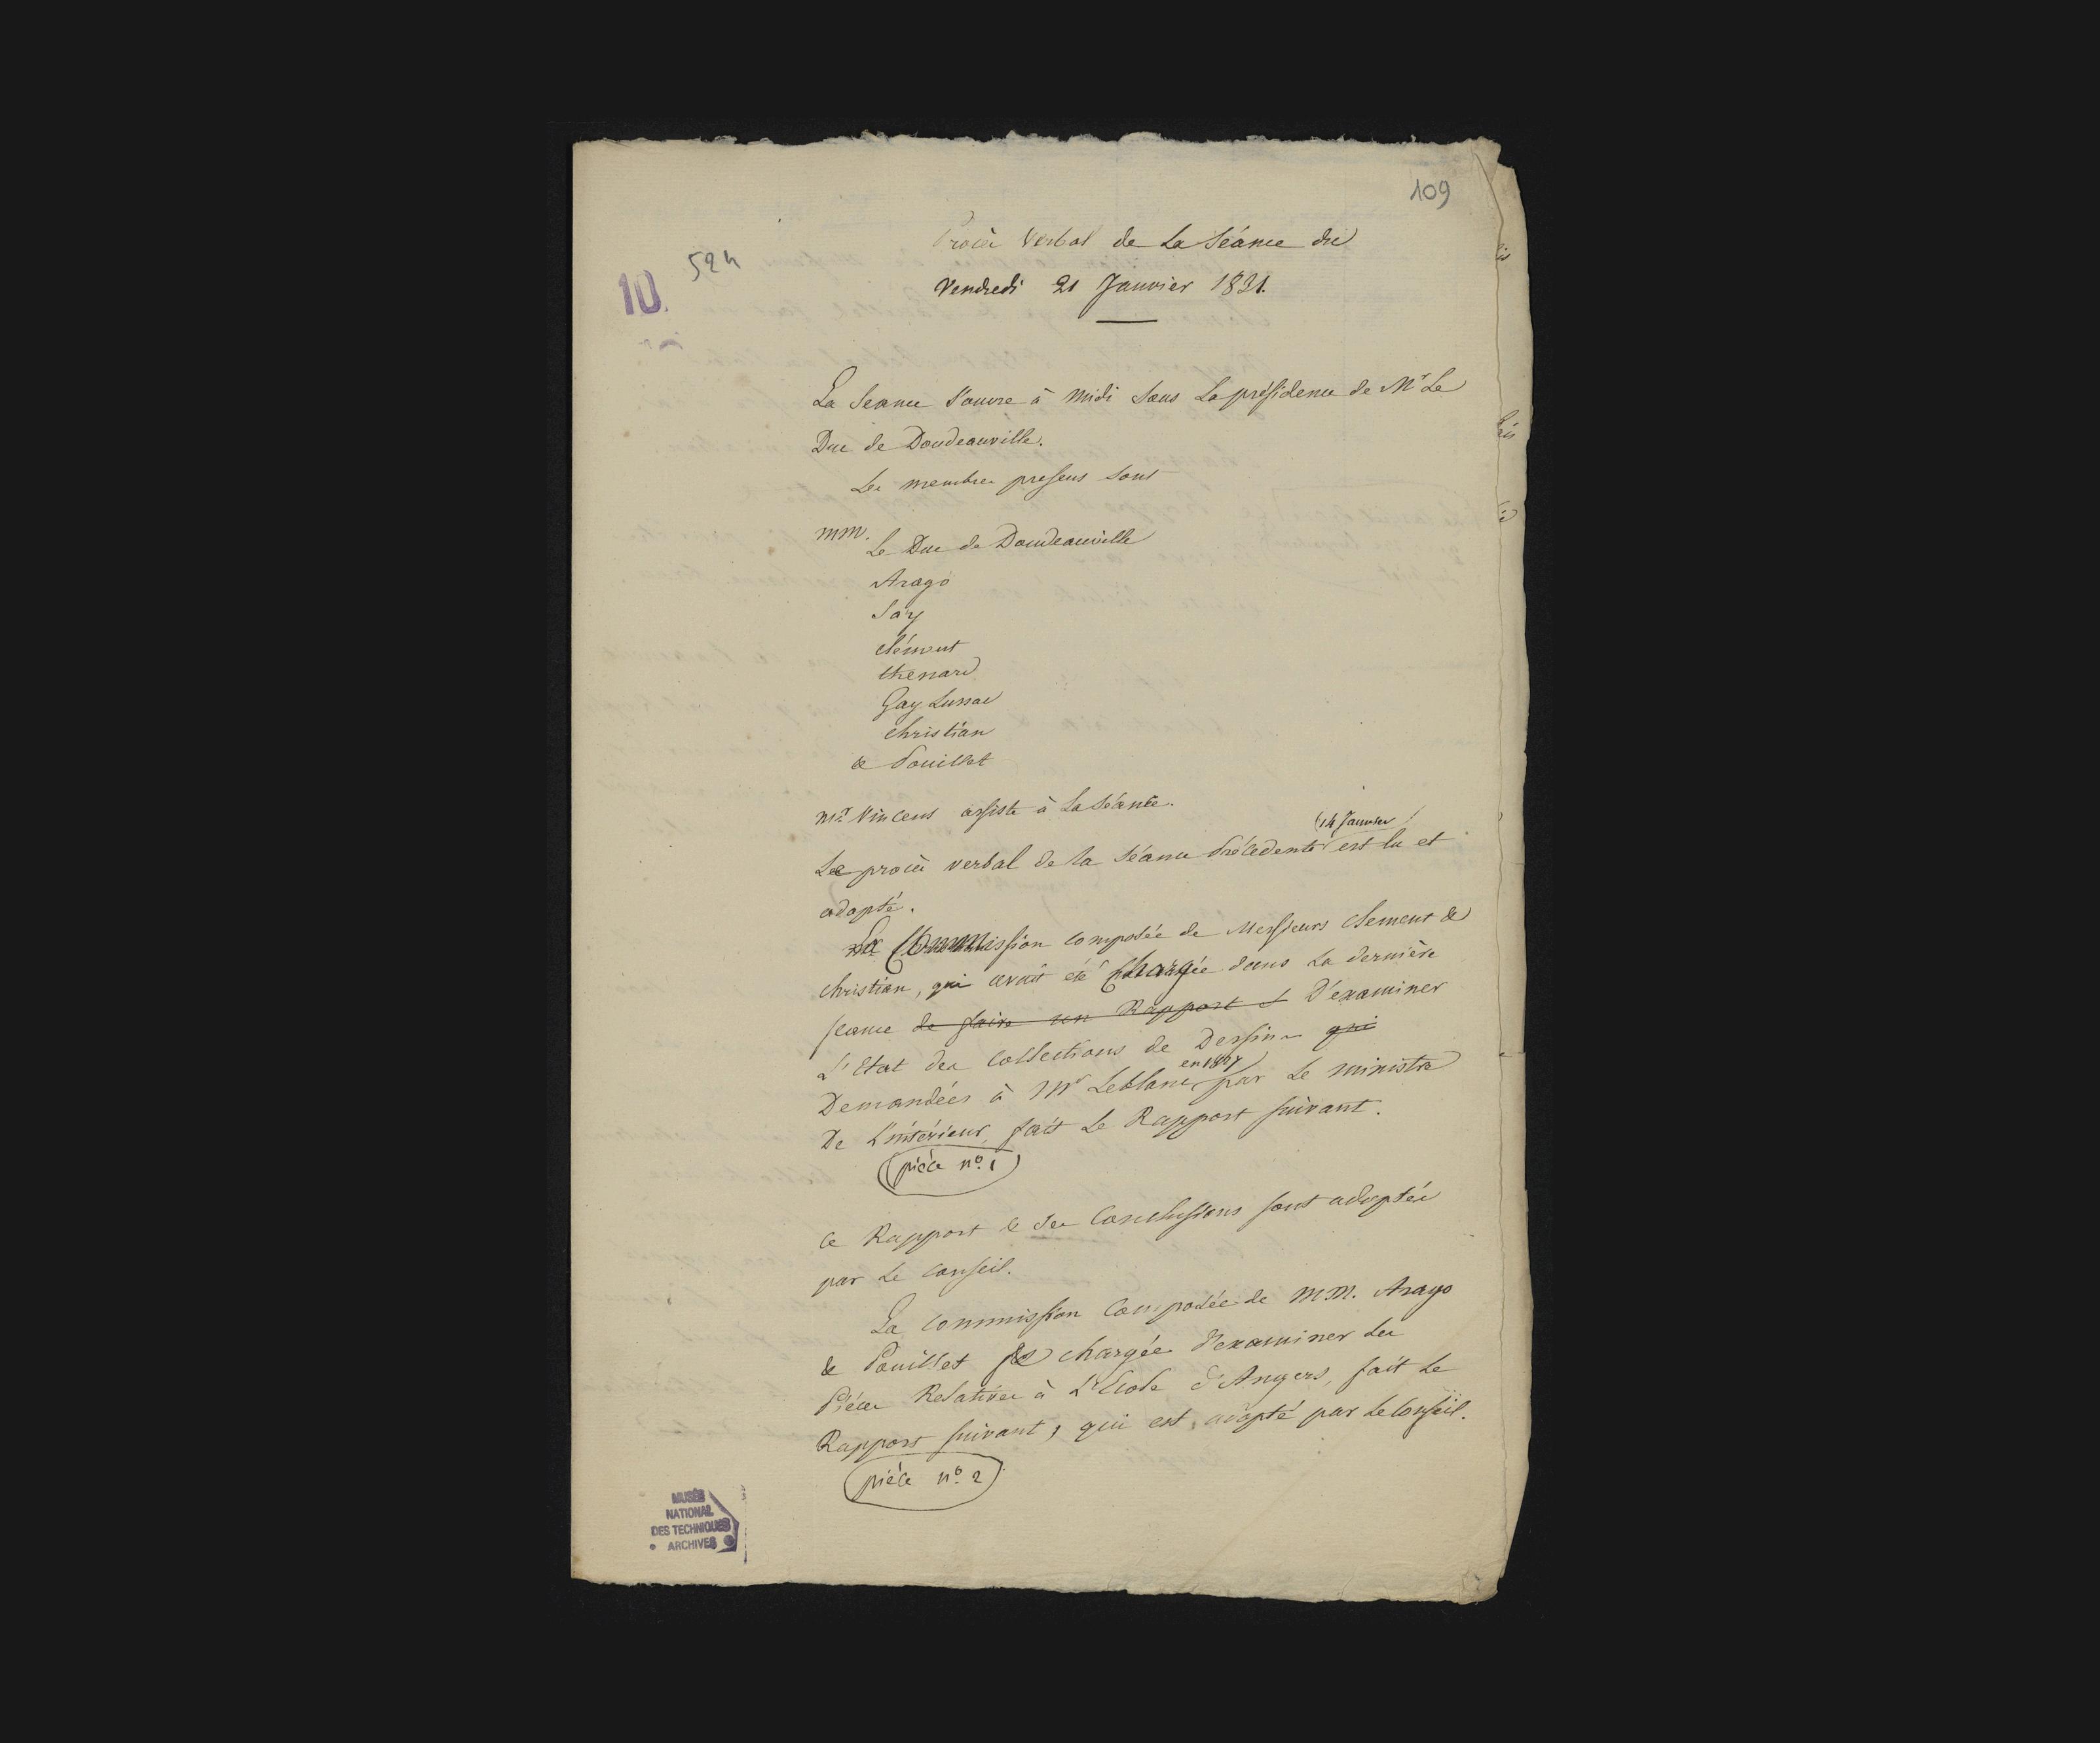 109
52h
10.
Procès Verbal de La Séance du
Vendredi 21 Janvier 1831.
La Seance s'ouvre à midi sous La présidence de Mr Le
Duc de Doudeauville.
Les membres presens sont
MM. Le Duc de Doudeauville
Arago
Say
Clément
thenard
Gay Lussac
Christian
& Pouillet
Mr Vincens assiste à La Séance.
(14 Janvier)
Le procès verbal de la Séance Précédente est lu et
adopté.
La Commission composée de Messieurs Clement &
Christian, qui avait été chargée dans La dernière
seance de faire un Rapport & D'examiner
L'Etat des Collections de Dessins qui
en 1827
Demandées à Mr Leblanc par Le ministre
De L'intérieur, fait Le Rapport suivant.
(pièce no. 1)
Ce Rapport & ses Conclusions sont adoptés
par Le Conseil.
La Commission Composée de MM. Arago
& Pouillet chargée d'examiner Les
Pièces Relatives à L'Ecole d'Angers, fait Le
Rapport suivant, qui est adopté par Le Conseil.
(pièce no. 2)
MUSÉE
NATIONAL
DES TECHNIQUES
ARCHIVES